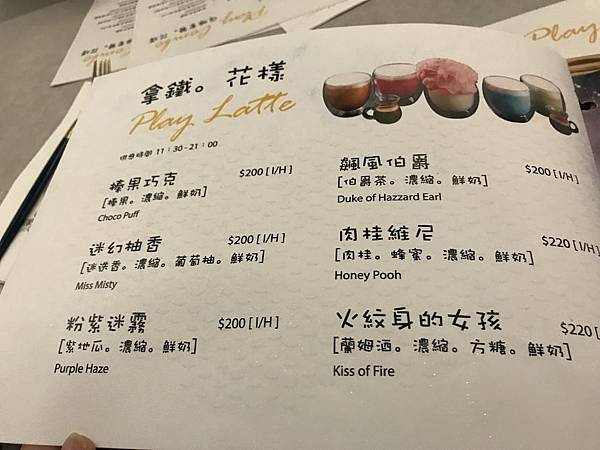 拿鐵。花樣
Play Latte
供應時間 11：30-21：00
榛果巧克 $200 [ I/H ]
[榛果。濃縮。鮮奶]
Choco Puff
迷幻柚香 $200 [ I/H ]
[迷迭香。濃縮。葡萄柚。鮮奶]
Miss Misty
粉紫迷霧 $200 [ I/H ]
[紫地瓜。濃縮。鮮奶]
Purple Haze
飆風伯爵 $200 [ I/H ]
[伯爵茶。濃縮。鮮奶]
Duke of Hazzard Earl
肉桂維尼 $220 [ I/H ]
[肉桂。蜂蜜。濃縮。鮮奶]
Honey Pooh
火紋身的女孩 $220 [
[蘭姆酒。濃縮。方糖。鮮奶]
Kiss of Fire
Play